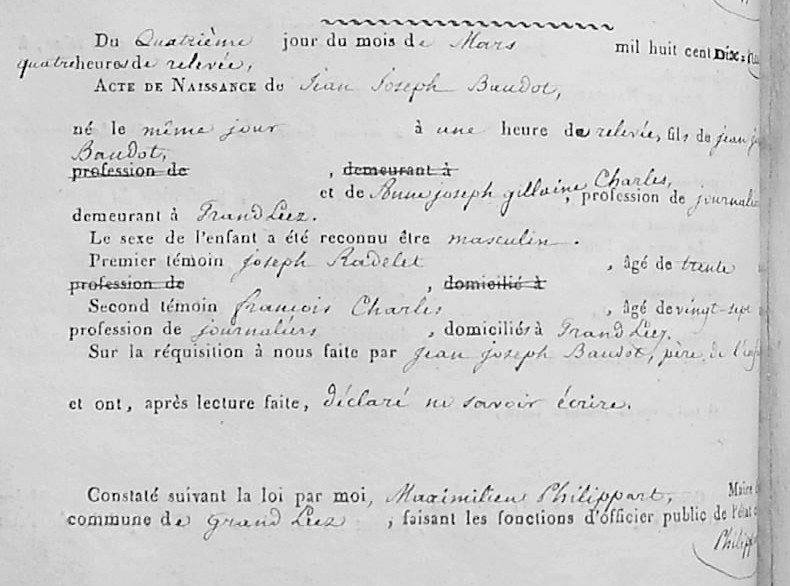 Du Quatrième jour du mois de Mars mil huit cent Dix-
quatre heures de relevée,
ACTE DE NAISSANCE de Jean Joseph Baudot,
né le même jour à une heure de relevée, fils de jean
Baudot,
profession de , demeurant à
et de Anne joseph gillaine Charles, profession de journali
demeurant à Grand Leez.
Le sexe de l'enfant a été reconnu être masculin.
Premier témoin joseph Radelet , âgé de trente
profession de , domicilié à
Second témoin françois Charles , âgé de vingt-sept
profession de journaliers , domiciliés à Grand Leez.
Sur la réquisition à nous faite par jean joseph Baudot, père de l'enf
et ont, après lecture faite, déclaré ne savoir écrire.
Constaté suivant la loi par moi, Maximilien Philippart, Maire
commune de grand Leez , faisant les fonctions d'officier public de l'état
Philipp